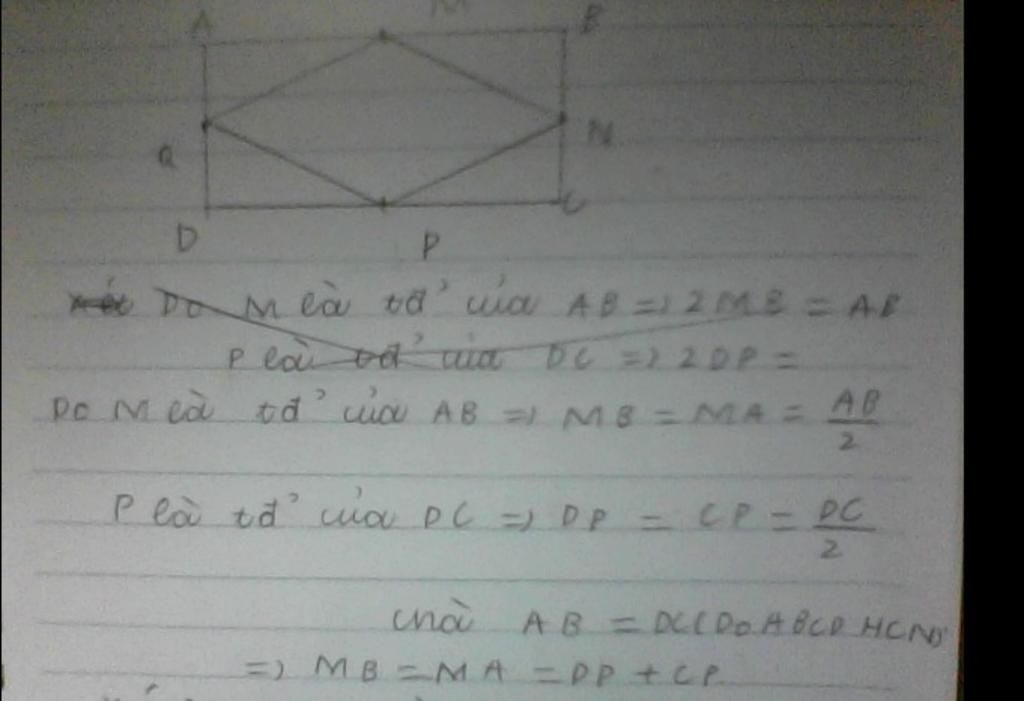 M
A B
Q N
D P C
Do M là tđ' của AB => 2MB = AB
P là tđ' của DC => 2DP =
Do M là tđ' của AB => MB = MA = AB/2
P là tđ' của DC => DP = CP = DC/2
mà AB = DC (Do ABCD HCN)
=> MB = MA = DP + CP